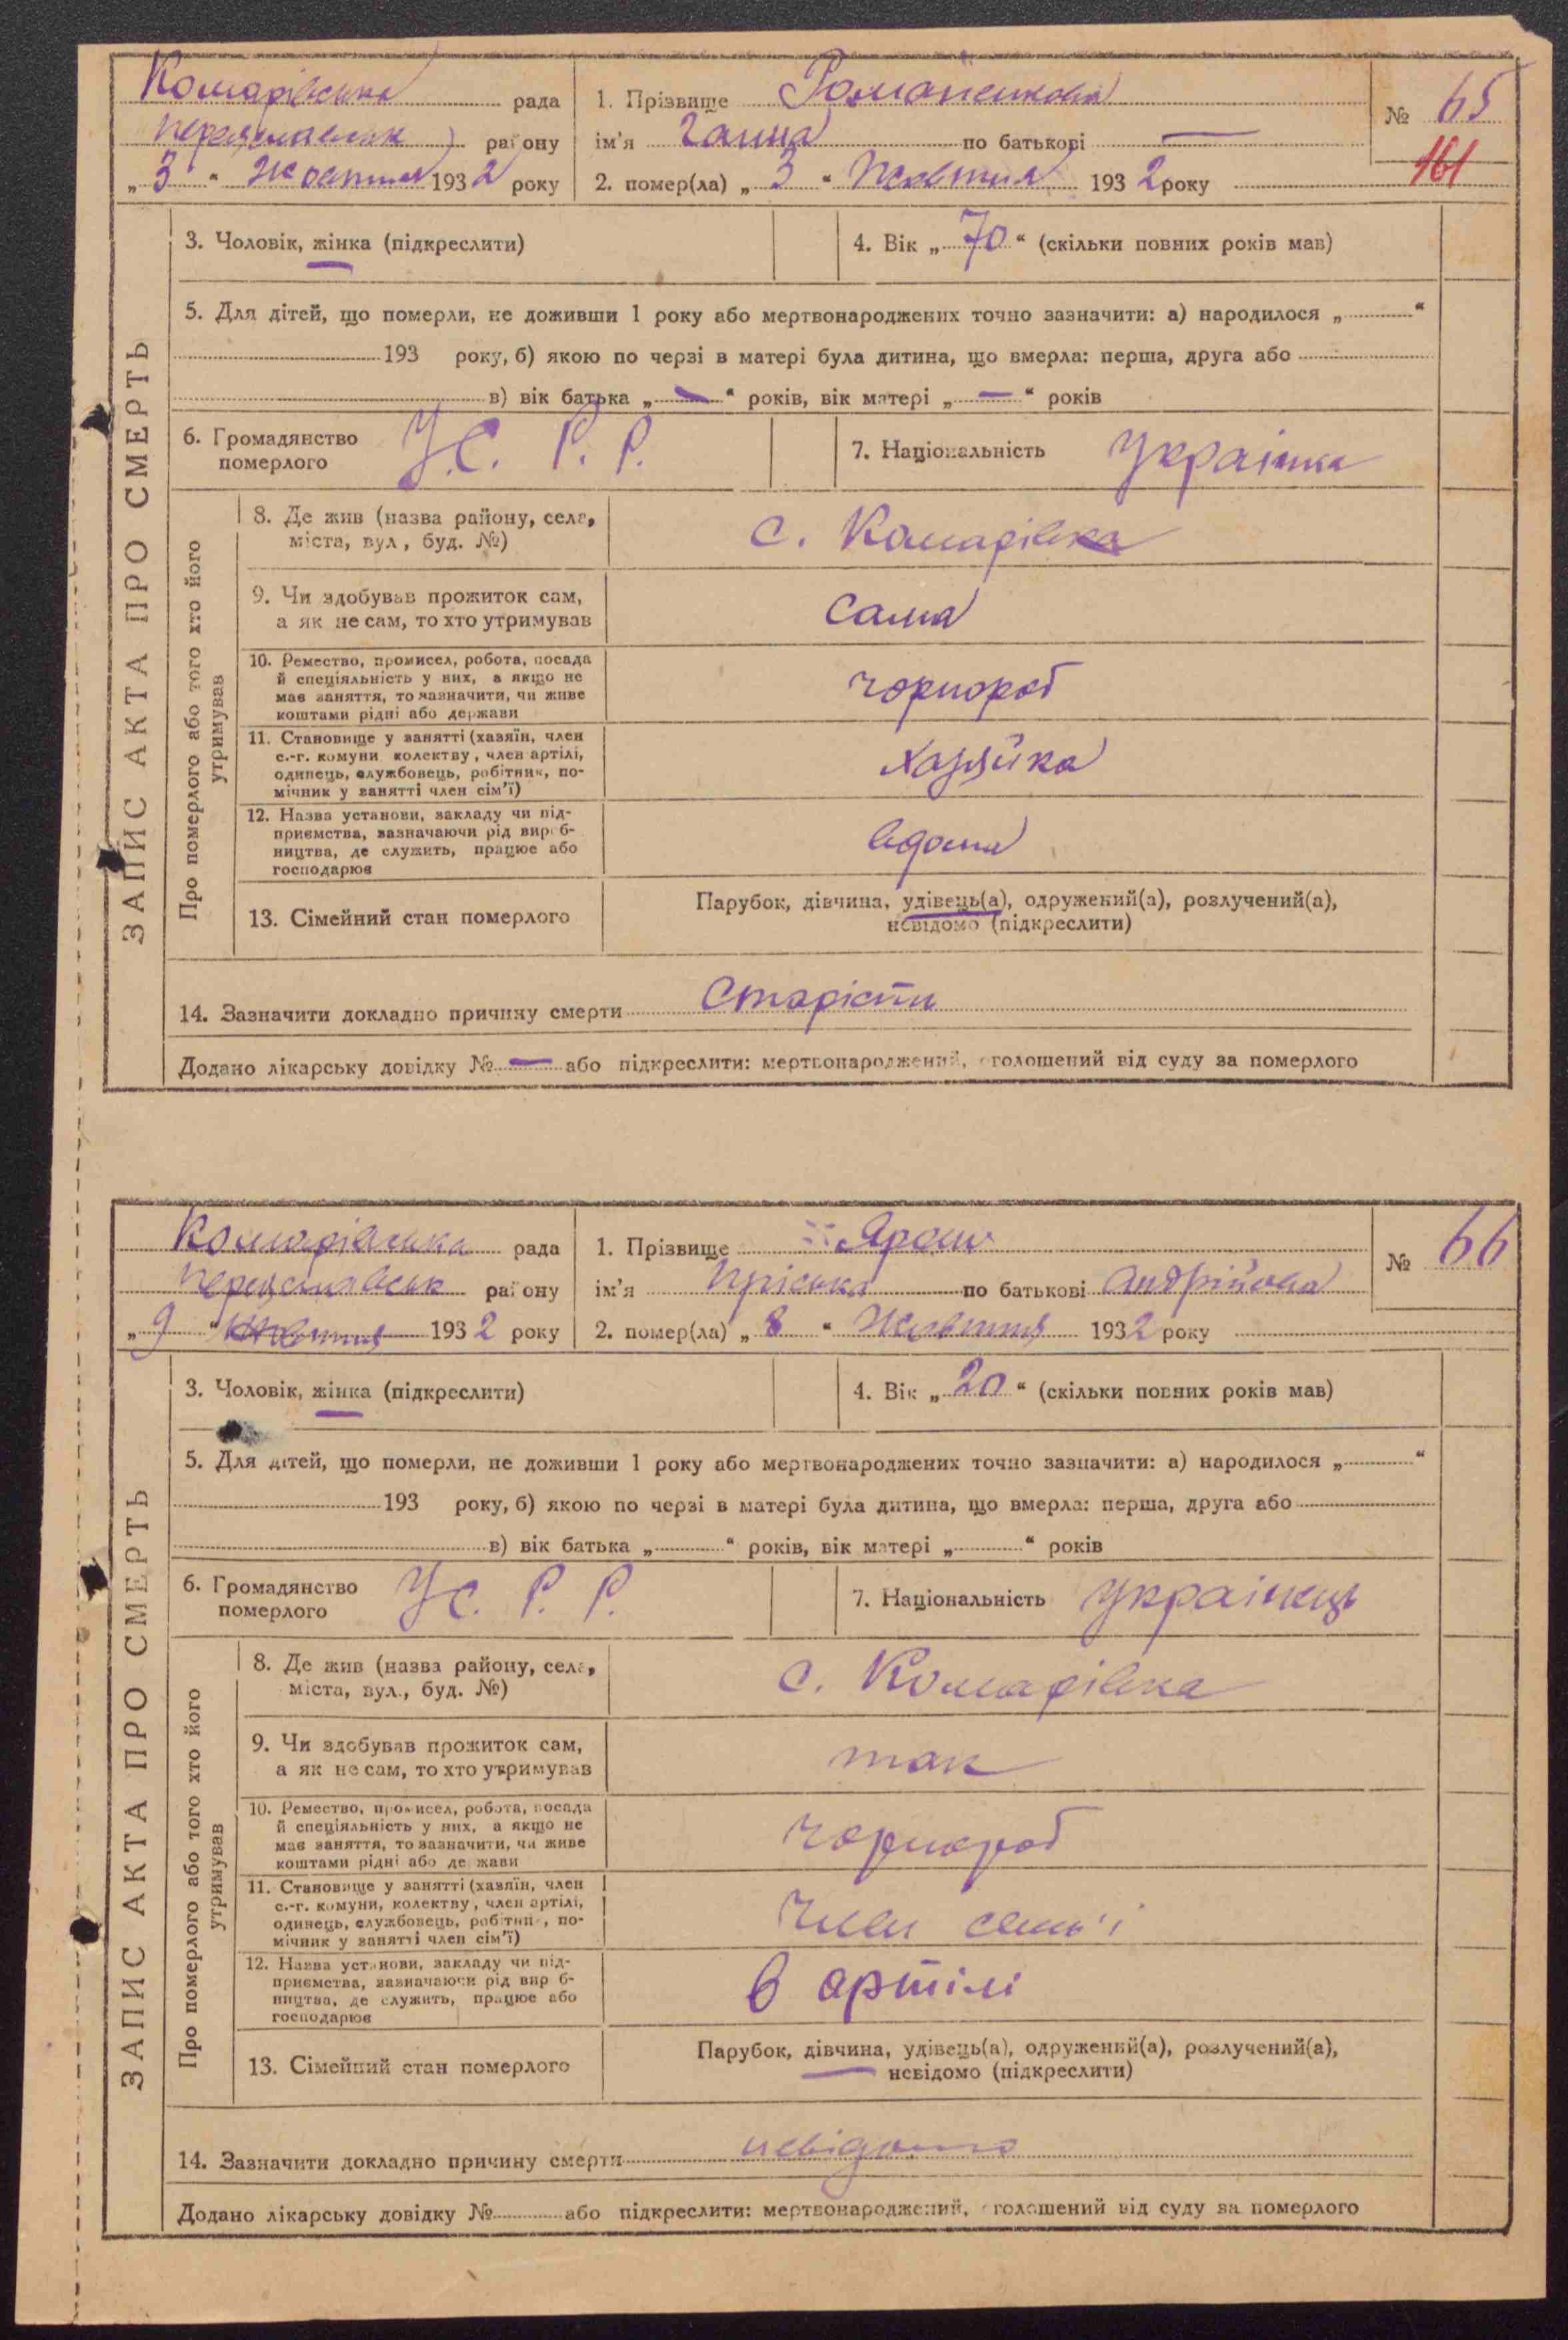 Комарівська рада
Переяславськ району
„3“ Жовтня 1932 року
1. Прізвище Романенкова
ім'я Ганна по батькові —
2. помер(ла) „3“ Жовтня 1932 року
№ 65
161
ЗАПИС АКТА ПРО СМЕРТЬ
3. Чоловік, жінка (підкреслити)
4. Вік „70“ (скільки повних років мав)
5. Для дітей, що померли, не доживши 1 року або мертвонароджених точно зазначити: а) народилося „ “
193 року, б) якою по черзі в матері була дитина, що вмерла: перша, друга або
в) вік батька „—“ років, вік матері „—“ років
6. Громадянство
померлого
У.С.Р.Р.
7. Національність Українка
Про померлого або того хто його
утримував
8. Де жив (назва району, села,
міста, вул., буд. №)
с. Комарівка
9. Чи здобував прожиток сам,
а як не сам, то хто утримував
Сама
10. Ремество, промисел, робота, посада
й спеціяльність у них, а якщо не
має заняття, то зазначити, чи живе
коштами рідні або держави
чорнороб
11. Становище у занятті (хазяїн, член
с.-г. комуни колектву, член артілі,
одинець, службовець, робітник, по-
мічник у занятті член сім'ї)
Хазяйка
12. Назва установи, закладу чи під-
приємства, зазначаючи рід вироб-
ництва, де служить, працює або
господарює
вдома
13. Сімейний стан померлого
Парубок, дівчина, удівець(а), одружений(а), розлучений(а),
невідомо (підкреслити)
14. Зазначити докладно причину смерти Старісти
Додано лікарську довідку № — або підкреслити: мертвонароджений, оголошений від суду за померлого
Комарівська рада
Переяславськ району
„9“ Жовтня 1932 року
1. Прізвище Ярош
ім'я Пріська по батькові Андрійова
2. помер(ла) „8“ Жовтня 1932 року
№ 66
ЗАПИС АКТА ПРО СМЕРТЬ
3. Чоловік, жінка (підкреслити)
4. Вік „20“ (скільки повних років мав)
5. Для дітей, що померли, не доживши 1 року або мертвонароджених точно зазначити: а) народилося „ “
193 року, б) якою по черзі в матері була дитина, що вмерла: перша, друга або
в) вік батька „ “ років, вік матері „ “ років
6. Громадянство
померлого
У.С.Р.Р.
7. Національність Українець
Про померлого або того хто його
утримував
8. Де жив (назва району, села,
міста, вул., буд. №)
с. Комарівка
9. Чи здобував прожиток сам,
а як не сам, то хто утримував
так
10. Ремество, промисел, робота, посада
й спеціяльність у них, а якщо не
має заняття, то зазначити, чи живе
коштами рідні або держави
чорнороб
11. Становище у занятті (хазяїн, член
с.-г. комуни, колектву, член артілі,
одинець, службовець, робітник, по-
мічник у занятті член сім'ї)
Член семь'ї
12. Назва установи, закладу чи під-
приємства, зазначаючи рід вироб-
ництва, де служить, працює або
господарює
в артілі
13. Сімейний стан померлого
Парубок, дівчина, удівець(а), одружений(а), розлучений(а),
невідомо (підкреслити)
14. Зазначити докладно причину смерти невідомо
Додано лікарську довідку № або підкреслити: мертвонароджений, оголошений від суду за померлого